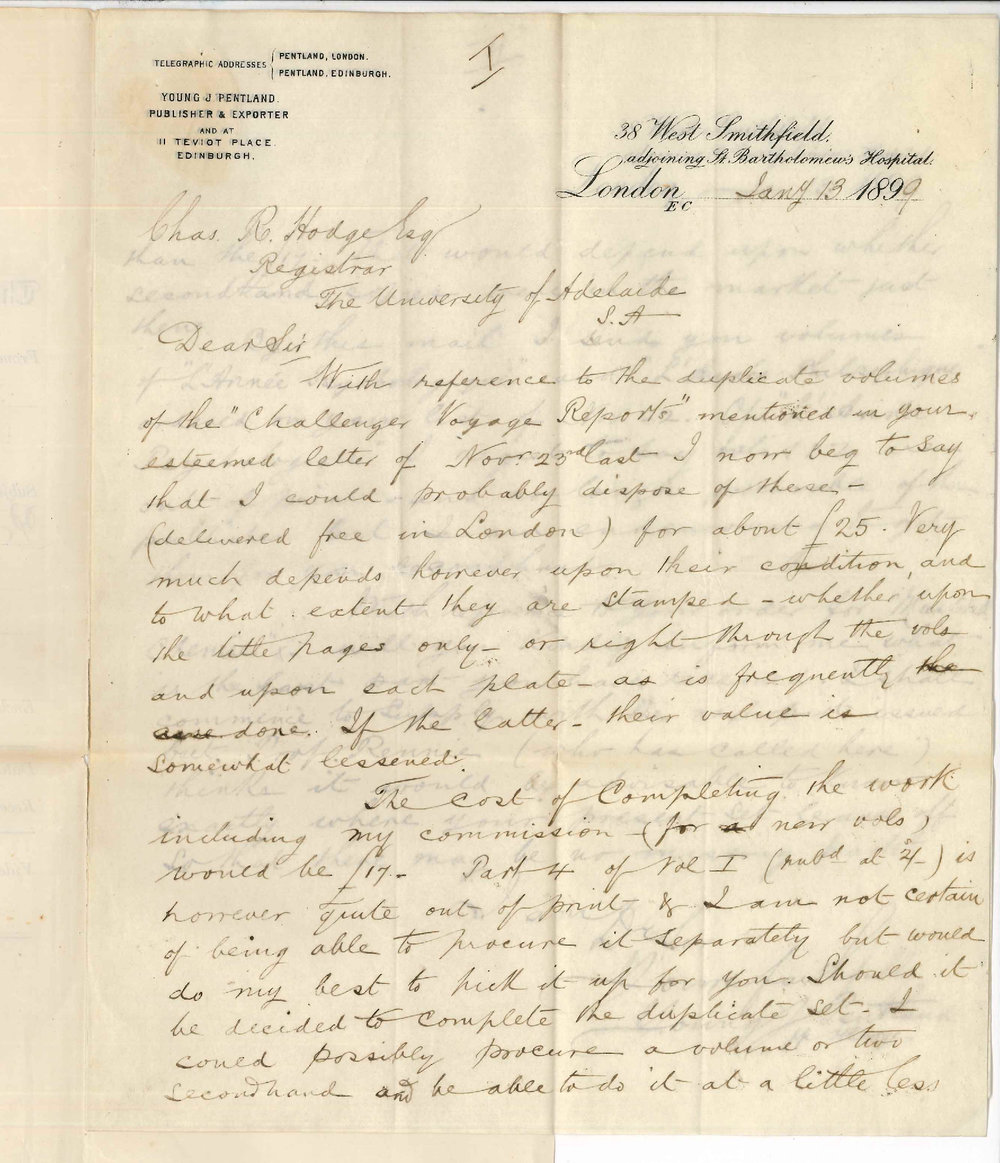 I
TELEGRAPHIC ADDRESSES { PENTLAND, LONDON.
PENTLAND, EDINBURGH.
YOUNG J PENTLAND.
PUBLISHER & EXPORTER
AND AT
11 TEVIOT PLACE.
EDINBURGH.
38 West Smithfield.
adjoining St. Bartholomew's Hospital.
London EC Jany 13 1899
Chas. R. Hodge Esq.
Registrar
The University of Adelaide
S.A
Dear Sir
With reference to the duplicate volumes
of the "Challenger Voyage Reports" mentioned in your
esteemed letter of Novr 23rd last I now beg to say
that I could probably dispose of these -
(delivered free in London) for about £25. Very
much depends however upon their condition, and
to what extent they are stamped - whether upon
the title pages only - or right through the vols
and upon each plate - as is frequently the
done. If the latter - their value is
somewhat lessened.
The cost of Completing the work
including my commission - (for a new vols)
would be £17 - Part 4 of Vol I (pubd at 2/-) is
however quite out of print & I am not certain
of being able to procure it separately but would
do my best to pick it up for you. Should it
be decided to complete the duplicate set - I
could possibly procure a volume or two
secondhand and be able to do it at a little less